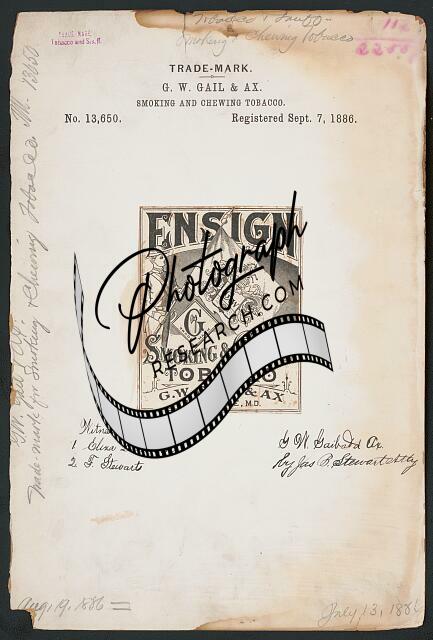 Tobacco & Snuff
Smoking & Chewing Tobacco
112
TRADE MARK
Tobacco and Snuff.
TRADE-MARK.
G. W. GAIL & AX.
SMOKING AND CHEWING TOBACCO.
No. 13,650.
Registered Sept. 7, 1886.
Trade-mark for Smoking & Chewing Tobacco No. 13650
ENSIGN
G
SMOKING &
TOB
O
G.W.
& AX
MD.
Photograph
RESEARCH.COM
1
2 F. Stewart
G W Gail and Ax.
by Jas B. Stewart Atty
Aug. 19, 1886
July 13, 1886